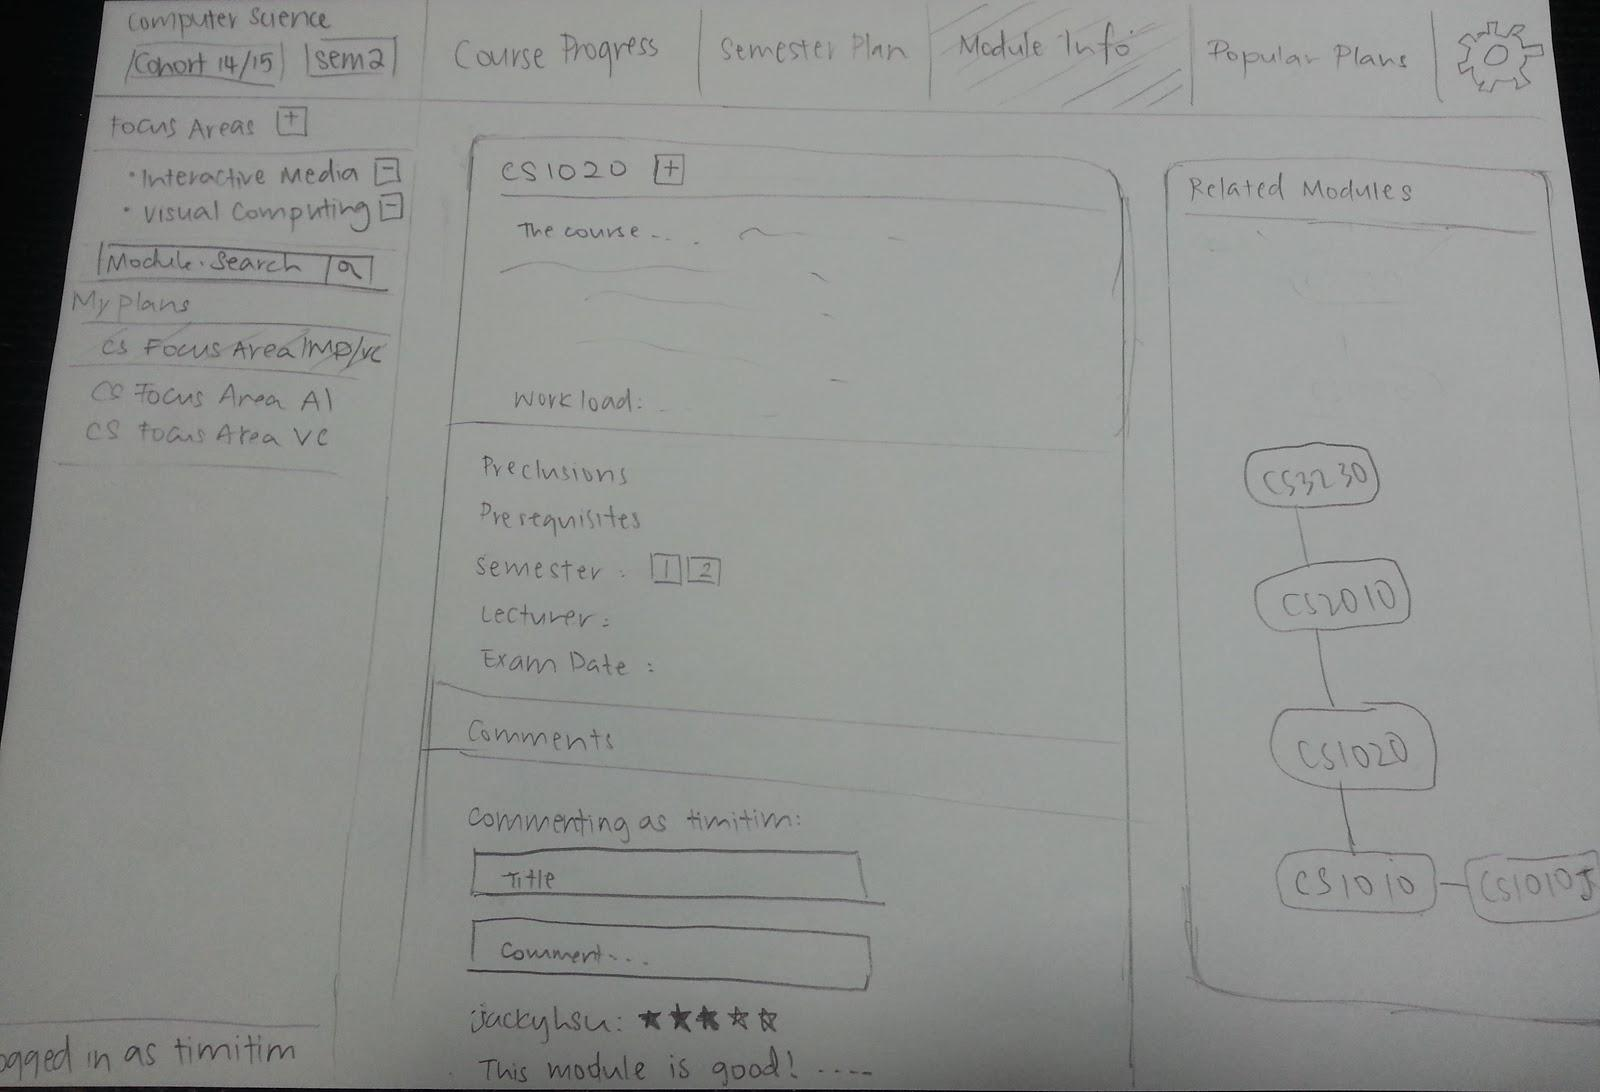 Computer Science
Cohort 14/15 sem2
Course Progress
Semester Plan
Module Info
Popular Plans
Focus Areas +
• Interactive Media -
• Visual Computing -
Module Search
My Plans
CS Focus Area IMD/VC
CS Focus Area AI
CS Focus Area VC
ogged in as timitim
CS1020 +
The course...
Workload:
Preclusions
Prerequisites
Semester: 1 2
Lecturer:
Exam Date:
Comments
Commenting as timitim:
Title
Comment...
jackyhsu: ★★★☆☆
This module is good! ----
Related Modules
CS3230
CS2010
CS1020
CS1010 CS1010J